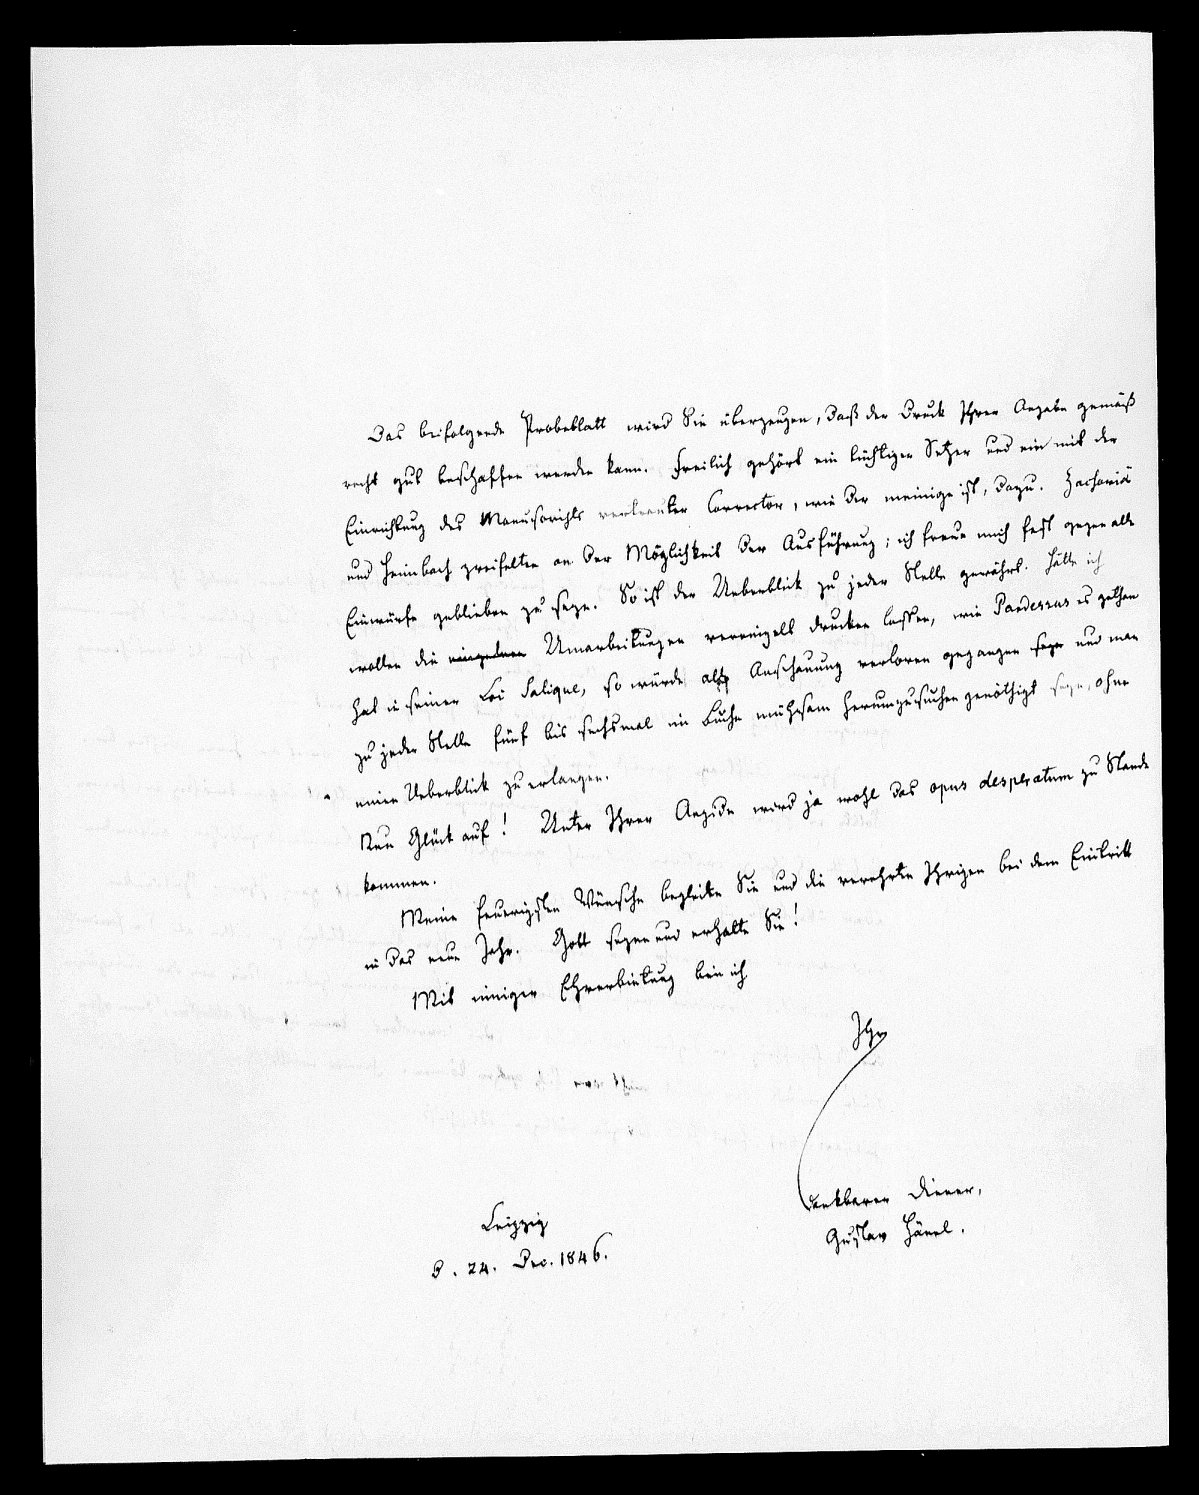 Das beifolgende Probeblatt wird Sie überzeugen, daß der Druck Ihrer Angabe gemäß
recht gut beschaffen werden kann. Freilich gehört ein tüchtiger Setzer und ein mit der
Einrichtung des Manuscripts vertrauter Corrector, wie der meinige ist, dazu. Zachariä
und Heimbach zweifelten an der Möglichkeit der Ausführung; ich freue mich fest gegen alle
Einwürfe geblieben zu seyn. So ist der Ueberblick zu jeder Stelle gewährt. Hätte ich
wollen die einzelnen Umarbeitungen vereinzelt drucken lassen, wie Pardessus es gethan
hat in seiner Loi Salique, so würde alle Anschauung verloren gegangen seyn und man
zu jeder Stelle fünf bis sechsmal im Buche mühsam herumzusuchen genöthigt seyn, ohne
einen Ueberblick zu erlangen.
Nun Glück auf! Unter Ihrer Aegide wird ja wohl das opus desperatum zu Stande
kommen.
Meine feurigsten Wünsche begleiten Sie und die verehrten Ihrigen bei dem Eintritt
in das neue Jahr. Gott segne und erhalte Sie!
Mit inniger Ehrerbietung bin ich
Ihr
dankbarer Diener,
Gustav Hänel.
Leipzig
d. 24. Dec. 1846.